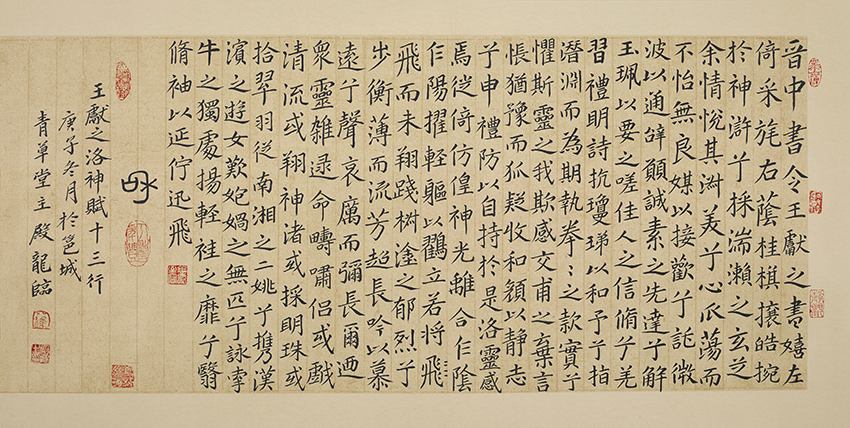 晉中書令王獻之書嬉左
倚采旄右蔭桂旗攘皓捥
於神滸兮採湍瀨之玄芝
余情悅其淑美兮心蕩而
不怡無良媒以接歡兮託微
波以通辝願誠素之先達兮解
玉珮以要之嗟佳人之信脩兮羌
習禮明詩抗瓊珶以和予兮指
潛淵而為期執拳〻之款實兮
懼斯靈之我欺感交甫之棄言
悵猶豫而狐疑收和顏以静志
兮申禮防以自持於是洛靈感
焉徙倚仿偟神光離合乍陰
乍陽擢輕軀以鸖立若將飛
飛而未翔踐椒塗之郁烈兮
步衡薄而流芳超長吟以慕
遠兮聲哀厲而彌長爾迺
衆靈雜遝命疇嘯侶或戲
清流或翔神渚或採明珠或
拾翠羽從南湘之二姚兮攜漢
濱之遊女歎匏媧之無匹兮詠牽
牛之獨處揚輕袿之靡兮翳
脩袖以延佇迅飛
王獻之洛神賦十三行
庚子冬月於邕城
青草堂主殿龍臨